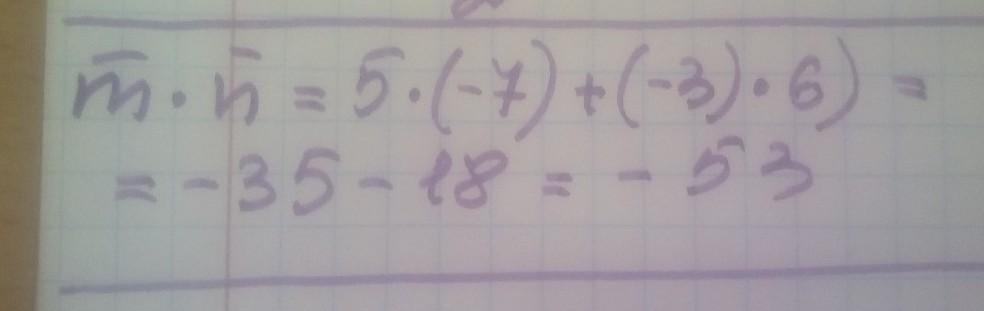 m̅ · n̅ = 5 · (-7) + (-3) · 6) =
= - 35 - 18 = - 53